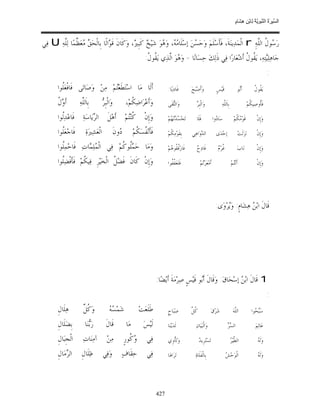 السِّيرَةُ النَّبَوِيَّةُ لابْنِ هِشَامٍ
رَسُولُ اللَّهِ r الْمَدِينَةَ، فَأَسْلَمَ وَحَسُنَ إسْلَامُهُ، وَهُوَ شَيْخٌ كَبِيرٌ، وَكَانَ قَوَّالًا بِالْحَقِّ مُعَظِّمًا لِلَّهِ U فِي
جَاهِلِيَّتِهِ، يَقُولُ أَشْعَارًا فِي ذَلِكَ حِسَانًا - وَهُوَ الَّذِي يَقُولُ:
يَقُولُ أَبُو قَيْسٍ وَأَصْبَحَ غَادِيًا أَلَا مَا اسْتَطَعْتُمْ مِنْ وَصَاتِي فَافْعَلُوا
فَأُوصِيكُمْ بِاللَّهِ وَالْبِرِّ وَالتُّقَى وَأَعْرَاضِكُمْ، وَالْبِرُّ بِاللَّهِ أَوَّلُ
وَإِنْ قَوْمُكُمْ سَادُوا فَلَا تَحْسُدُنَّهُمْ وَإِنْ كُنْتُمْ أَهْلَ الرِّيَاسَةِ فَاعْدِلُوا
وَإِنْ نَزَلَتْ إحْدَى الدَّوَاهِي بِقَوْمِكُمْ فَأَنْفُسَكُمْ دُونَ الْعَشِيرَةِ فَاجْعَلُوا
وَإِنْ نَابَ غُرْمٌ فَادِحٌ فَارْفُقُوهُمْ وَمَا حَمَّلُوكُمْ فِي الْمُلِمَّاتِ فَاحْمِلُوا
وَإِنْ أَنْتُمْ أَمْعَرْتُمْ فَتَعَفَّفُوا وَإِنْ كَانَ فَضْلُ الْخَيْرِ فِيكُمْ فَأَفْضِلُوا
قَالَ ابْنُ هِشَامٍ: وَيُرْوَى:
1 قَالَ ابْنُ إسْحَاقَ: وَقَالَ أَبُو قَيْسٍ صِرْمَةُ أَيْضًا:
سَبِّحُوا اللَّهَ شَرْقَ كُلِّ صَبَاحٍ طَلَعَتْ شَمْسُهُ وَكُلَّ هِلَالِ
عَالِمَ السِّرِّ وَالْبَيَانِ لَدَيْنَا لَيْسَ مَا قَالَ رَبُّنَا بِضَلَالِ
وَلَهُ الطَّيْرُ تَسْتَرِيدُ وَتَأْوِي فِي وُكُورٍ مِنْ آمِنَاتِ الْجِبَالِ
وَلَهُ الْوَحْشُ بِالْفَلَاةِ تَرَاهَا فِي حِقَافٍ وَفِي ظِلَالِ الرِّمَالِ
427